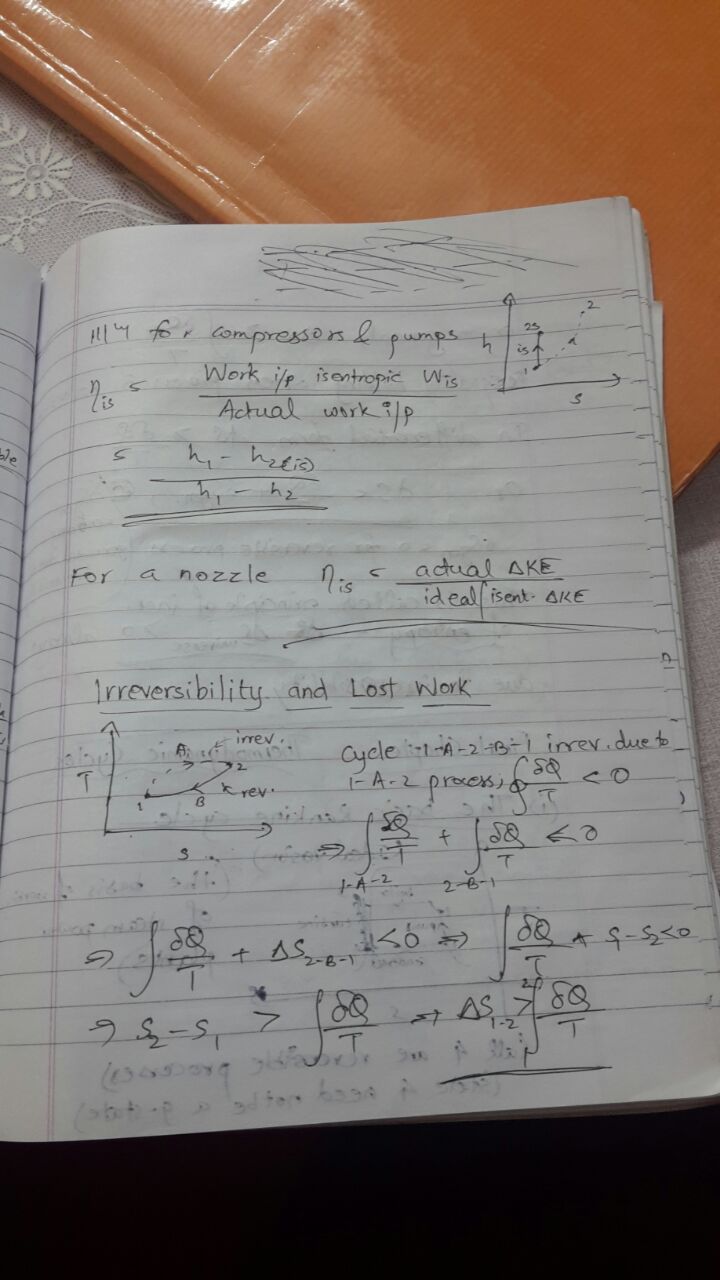 III'ly for compressors & pumps
η_is = Work i/p isentropic W_is / Actual work i/p
h
2s
2
is
a
1
s
= h₁ - h₂(is) / h₁ - h₂
For a nozzle η_is = actual ΔKE / ideal/isent. ΔKE
Irreversibility and Lost Work
T
A
irrev.
2
1
B
rev.
s
Cycle 1-A-2-B-1 irrev. due to
1-A-2 process, ∮ δQ/T < 0
⇒ ∫ δQ/T + ∫ δQ/T < 0
1-A-2 2-B-1
⇒ ∫ δQ/T + ΔS₂₋B₋₁ < 0 ⇒ ∫ δQ/T + S₁ - S₂ < 0
⇒ S₂ - S₁ > ∫ δQ/T ⇒ ΔS₁₋₂ > ₁∫² δQ/T